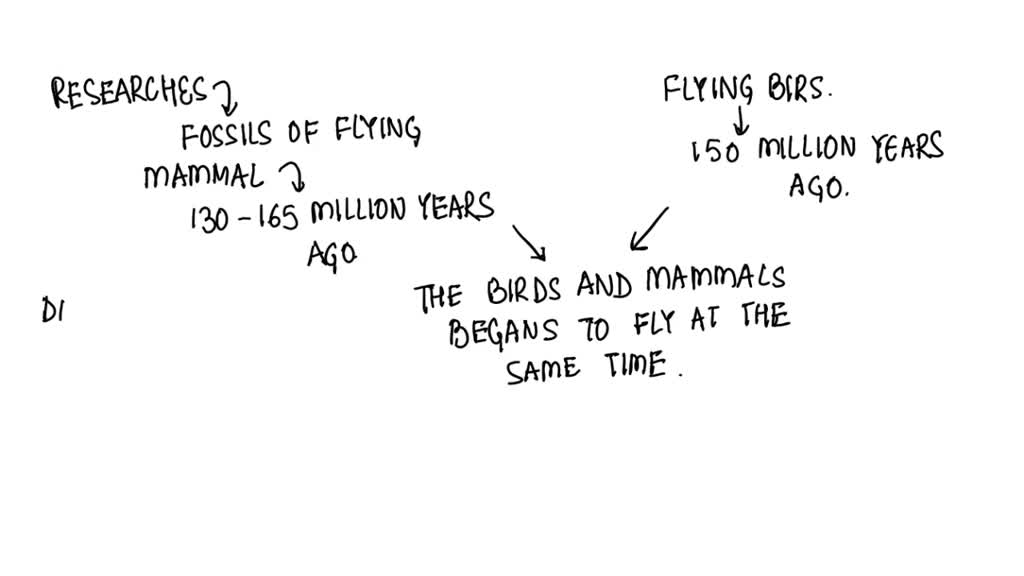 RESEARCHES
FOSSILS OF FLYING
MAMMAL
130-165 MILLION YEARS
AGO
FLYING BIRS.
150 MILLION YEARS
AGO.
THE BIRDS AND MAMMALS
BEGANS TO FLY AT THE
SAME TIME.
DI